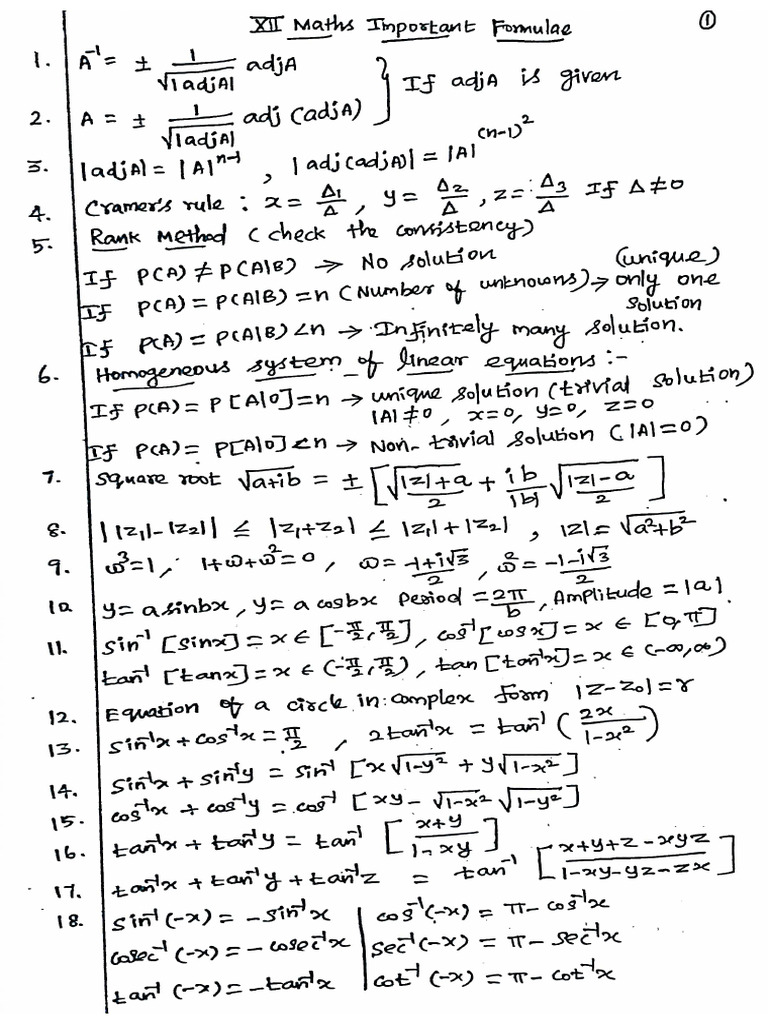 XII Maths Important Formulae ①
1. A⁻¹ = ± 1/√|adjA| adjA } If adjA is given
2. A = ± 1/√|adjA| adj (adjA)
3. |adjA| = |A|ⁿ⁻¹, |adj(adjA)| = |A|^(n-1)²
4. Cramer's rule : x = Δ₁/Δ, y = Δ₂/Δ, z = Δ₃/Δ If Δ≠0
5. Rank Method (check the consistency)
If P(A) ≠ P(A|B) → No solution
If P(A) = P(A|B) = n (Number of unknowns) → only one (unique) solution
If P(A) = P(A|B) < n → Infinitely many solution.
6. Homogeneous system of linear equations :-
If P(A) = P[A|0] = n → unique solution (trivial solution)
|A| ≠ 0, x=0, y=0, z=0
If P(A) = P[A|0] < n → Non-trivial solution (|A|=0)
7. square root √a+ib = ± [√(|z|+a)/2 + ib/|b| √(|z|-a)/2]
8. ||z₁|-|z₂|| ≤ |z₁+z₂| ≤ |z₁|+|z₂|, |z| = √a²+b²
9. ω³=1, 1+ω+ω²=0, ω = (-1+i√3)/2, ω² = (-1-i√3)/2
10 y = a sinbx, y = a cosbx Period = 2π/b, Amplitude = |a|
11. sin⁻¹[sinx] = x ∈ [-π/2, π/2], cos⁻¹[cosx] = x ∈ [0, π]
tan⁻¹[tanx] = x ∈ (-π/2, π/2), tan[tan⁻¹x] = x ∈ (-∞, ∞)
12. Equation of a circle in complex form |z-z₀| = r
13. sin⁻¹x + cos⁻¹x = π/2, 2tan⁻¹x = tan⁻¹(2x/(1-x²))
14. sin⁻¹x + sin⁻¹y = sin⁻¹[x√1-y² + y√1-x²]
15. cos⁻¹x + cos⁻¹y = cos⁻¹[xy - √1-x² √1-y²]
16. tan⁻¹x + tan⁻¹y = tan⁻¹[(x+y)/(1-xy)]
17. tan⁻¹x + tan⁻¹y + tan⁻¹z = tan⁻¹[(x+y+z-xyz)/(1-xy-yz-zx)]
18. sin⁻¹(-x) = -sin⁻¹x | cos⁻¹(-x) = π - cos⁻¹x
cosec⁻¹(-x) = -cosec⁻¹x | sec⁻¹(-x) = π - sec⁻¹x
tan⁻¹(-x) = -tan⁻¹x | cot⁻¹(-x) = π - cot⁻¹x